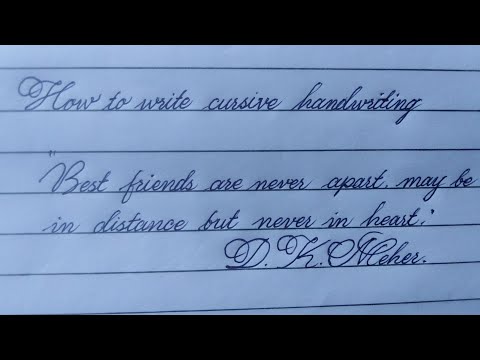 How to write cursive handwriting
"Best friends are never apart, may be
in distance but never in heart."
D. K. Meher.